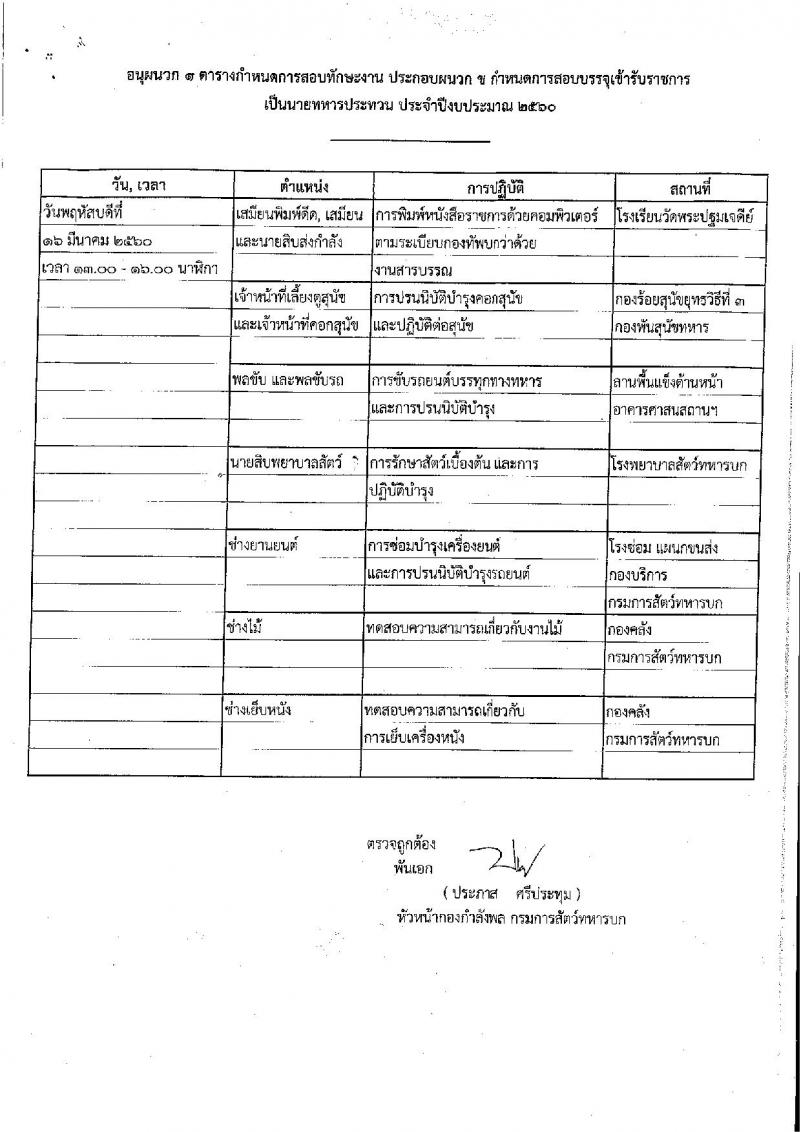 อนุผนวก ๑ ตารางกำหนดการสอบทักษะงาน ประกอบผนวก ข กำหนดการสอบบรรจุเข้ารับราชการ
เป็นนายทหารประทวน ประจำปีงบประมาณ ๒๕๖๐
วัน, เวลา ตำแหน่ง การปฏิบัติ สถานที่
วันพฤหัสบดีที่ เสมียนพิมพ์ดีด, เสมียน การพิมพ์หนังสือราชการด้วยคอมพิวเตอร์ โรงเรียนวัดพระปฐมเจดีย์
๑๖ มีนาคม ๒๕๖๐ และนายสิบส่งกำลัง ตามระเบียบกองทัพบกว่าด้วย
เวลา ๑๓.๐๐ - ๑๖.๐๐ นาฬิกา งานสารบรรณ
เจ้าหน้าที่เลี้ยงดูสุนัข การปรนนิบัติบำรุงคอกสุนัข กองร้อยสุนัขยุทธวิธีที่ ๓
และเจ้าหน้าที่คอกสุนัข และปฏิบัติต่อสุนัข กองพันสุนัขทหาร
พลขับ และพลขับรถ การขับรถยนต์บรรทุกทางทหาร ลานพื้นแข็งด้านหน้า
และการปรนนิบัติบำรุง อาคารศาสนสถานฯ
นายสิบพยาบาลสัตว์ การรักษาสัตว์เบื้องต้น และการ โรงพยาบาลสัตว์ทหารบก
ปฏิบัติบำรุง
ช่างยานยนต์ การซ่อมบำรุงเครื่องยนต์ โรงซ่อม แผนกขนส่ง
และการปรนนิบัติบำรุงรถยนต์ กองบริการ
กรมการสัตว์ทหารบก
ช่างไม้ ทดสอบความสามารถเกี่ยวกับงานไม้ กองคลัง
กรมการสัตว์ทหารบก
ช่างเย็บหนัง ทดสอบความสามารถเกี่ยวกับ กองคลัง
การเย็บเครื่องหนัง กรมการสัตว์ทหารบก
ตรวจถูกต้อง
พันเอก
( ประภาส ศรีประทุม )
หัวหน้ากองกำลังพล กรมการสัตว์ทหารบก